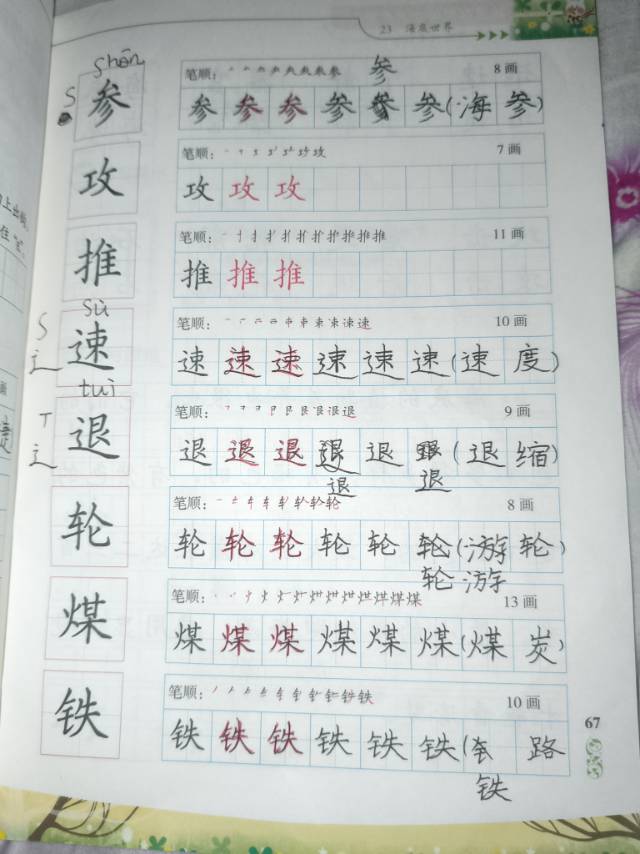 23 海底世界
shēn
笔顺： 参
8 画
S
参
参 参 参 参 参 参 (海 参)
笔顺：
7 画
攻
攻 攻 攻
笔顺：
11 画
推
推 推 推
sù
笔顺：
10 画
S
辶
速
速 速 速 速 速 速 (速 度)
tuì
笔顺：
9 画
T
辶
退
退 退 退 退 退 退 (退 缩)
退 退
笔顺：
8 画
轮
轮 轮 轮 轮 轮 轮 (游 轮)
轮 游
笔顺：
13 画
煤
煤 煤 煤 煤 煤 煤 (煤 炭)
笔顺：
10 画
铁
铁 铁 铁 铁 铁 铁 ( 路
铁
67